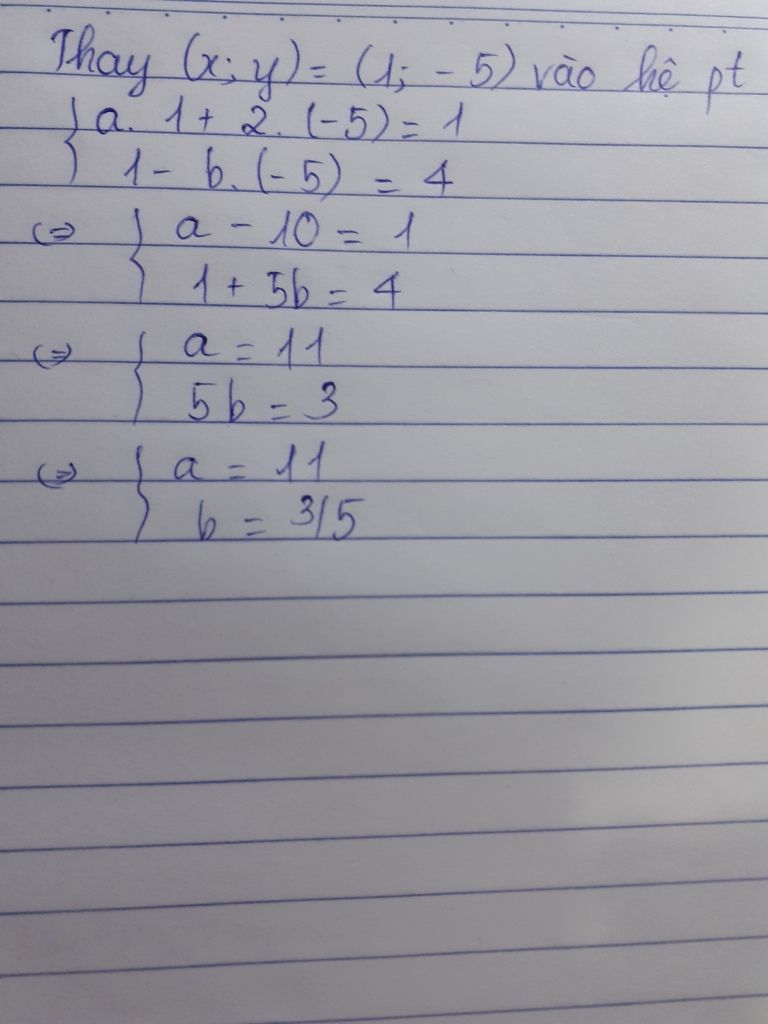 Thay (x; y) = (1; - 5) vào hệ pt
{ a. 1 + 2. (-5) = 1
1 - b. (-5) = 4
<=> { a - 10 = 1
1 + 5b = 4
<=> { a = 11
5b = 3
<=> { a = 11
b = 3/5